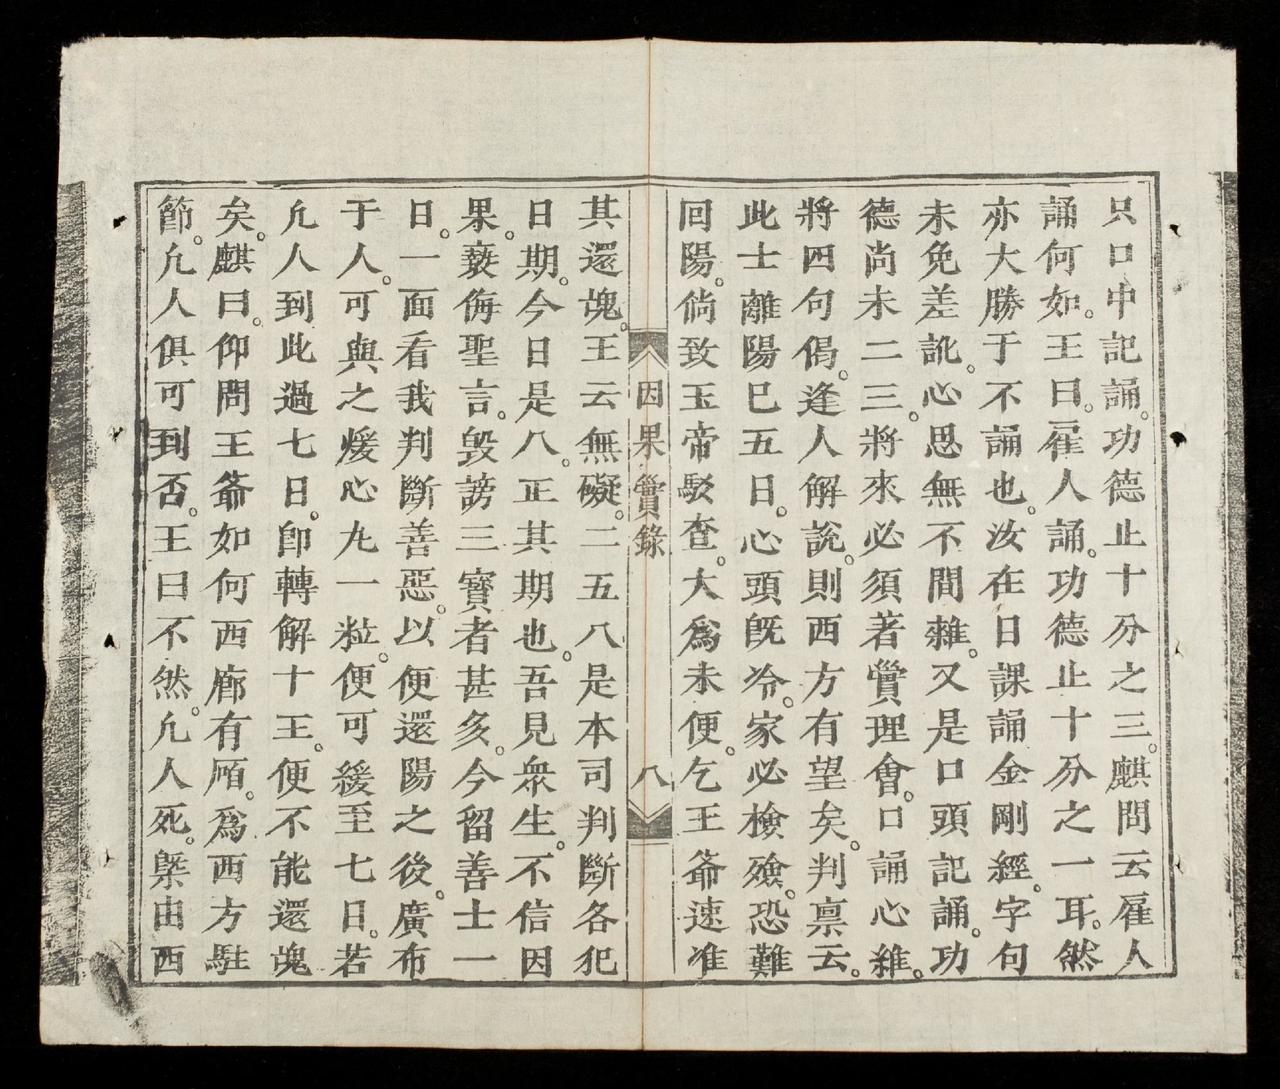 只口中記誦。功德止十分之三。麒問云雇人
誦何如。王曰。雇人誦。功德止十分之一耳。然
亦大勝于不誦也。汝在日課誦金剛經。字句
未免差訛。心思無不間雜。又是口頭記誦。功
德尚未二三。將來必須著實理會。口誦心維。
將四句偈。逢人解說。則西方有望矣。判禀云。
此士離陽已五日。心頭既冷。家必檢殮。恐難
回陽。倘致玉帝駁查。大為未便。乞王爺速准
因果實錄
八
其還魂。王云無礙。二五八是本司判斷各犯
日期。今日是八。正其期也。吾見衆生。不信因
果。褻侮聖言。毀謗三寶者甚多。今留善士一
日。一面看我判斷善惡。以便還陽之後。廣布
于人。可與之煖心丸一粒。便可緩至七日。若
凢人到此過七日。卽轉解十王。便不能還魂
矣。麒曰。仰問王爺如何西廊有廟。為西方駐
節。凢人俱可到否。王曰不然。凢人死。槩由西